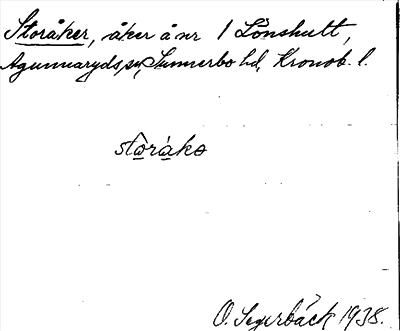 Storåker, åker å nr 1 Lönshult,
Agunnaryds sn, Sunnerbo hd, Kronob. l.
stòràkɵ
O. Segerbäck 1938.